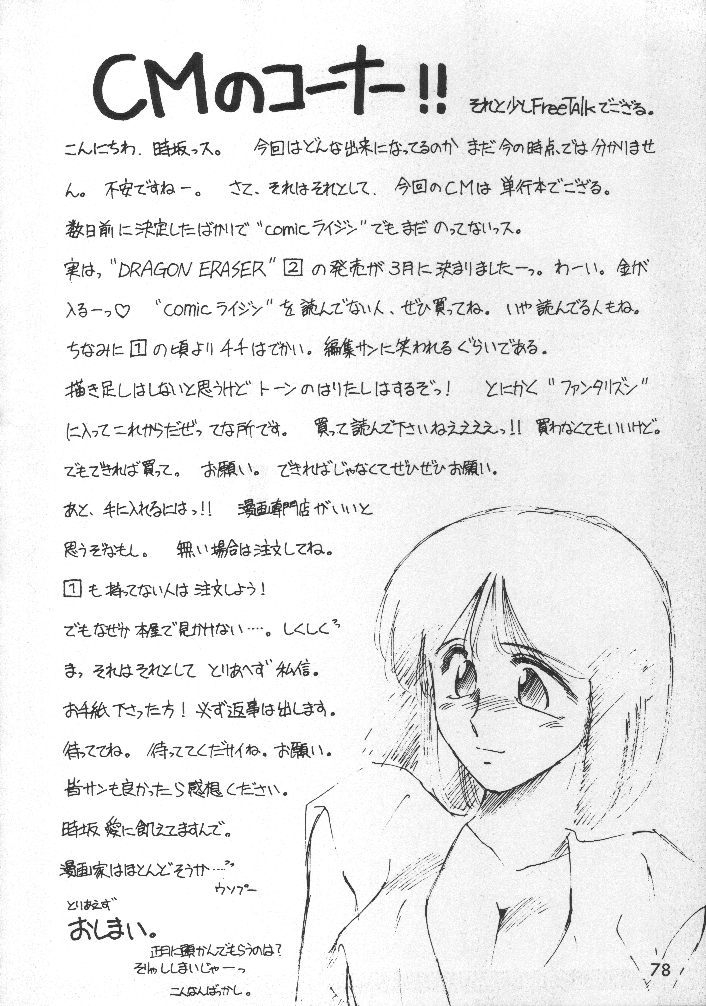 CMのコーナー!!
それと少しFreeTalkでござる。
こんにちわ、時坂っス。 今回はどんな出来になってるのか まだ今の時点では分かりませ
ん。 不安ですねー。 さて、それはそれとして、今回のCMは 単行本でござる。
数日前に決定したばかりで“comic ライジン”でもまだ のってないっス。
実はっ“DRAGON ERASER” 2 の発売が 3月に決まりましたーっ。わーい。金が
入るーっ♡ “comic ライジン”を読んでない人、ぜひ買ってね。いや読んでる人もね。
ちなみに 1 の頃より チチはでかい。編集サンに笑われるぐらいである。
描き足しはしないと思うけど トーンのはりたしはするぞっ! とにかく “ファンタリズン”
に入ってこれからだぜってな所です。 買って読んで下さいねええええっ!! 買わなくてもいいけど。
でもできれば買って。 お願い。 できればじゃなくてぜひぜひお願い。
あと、手に入れるにはっ!! 漫画専門店がいいと
思うぞなもし。 無い場合は注文してね。
1 も持ってない人は注文しよう!
でもなぜか 本屋で見かけない‥‥。しくしく
まっ それはそれとして とりあへず 私信。
お手紙下さった方! 必ず返事は出します。
待っててね。 待っててくだサイね。お願い。
皆サンも良かったら感想ください。
時坂 愛に飢えてますんで。
漫画家はほとんどそうか‥‥
ウソプー
とりあえず
おしまい。
正月に頭かんでもらうのは?
そりゅ ししまいじゃーっ
こんなんばっかし。
78